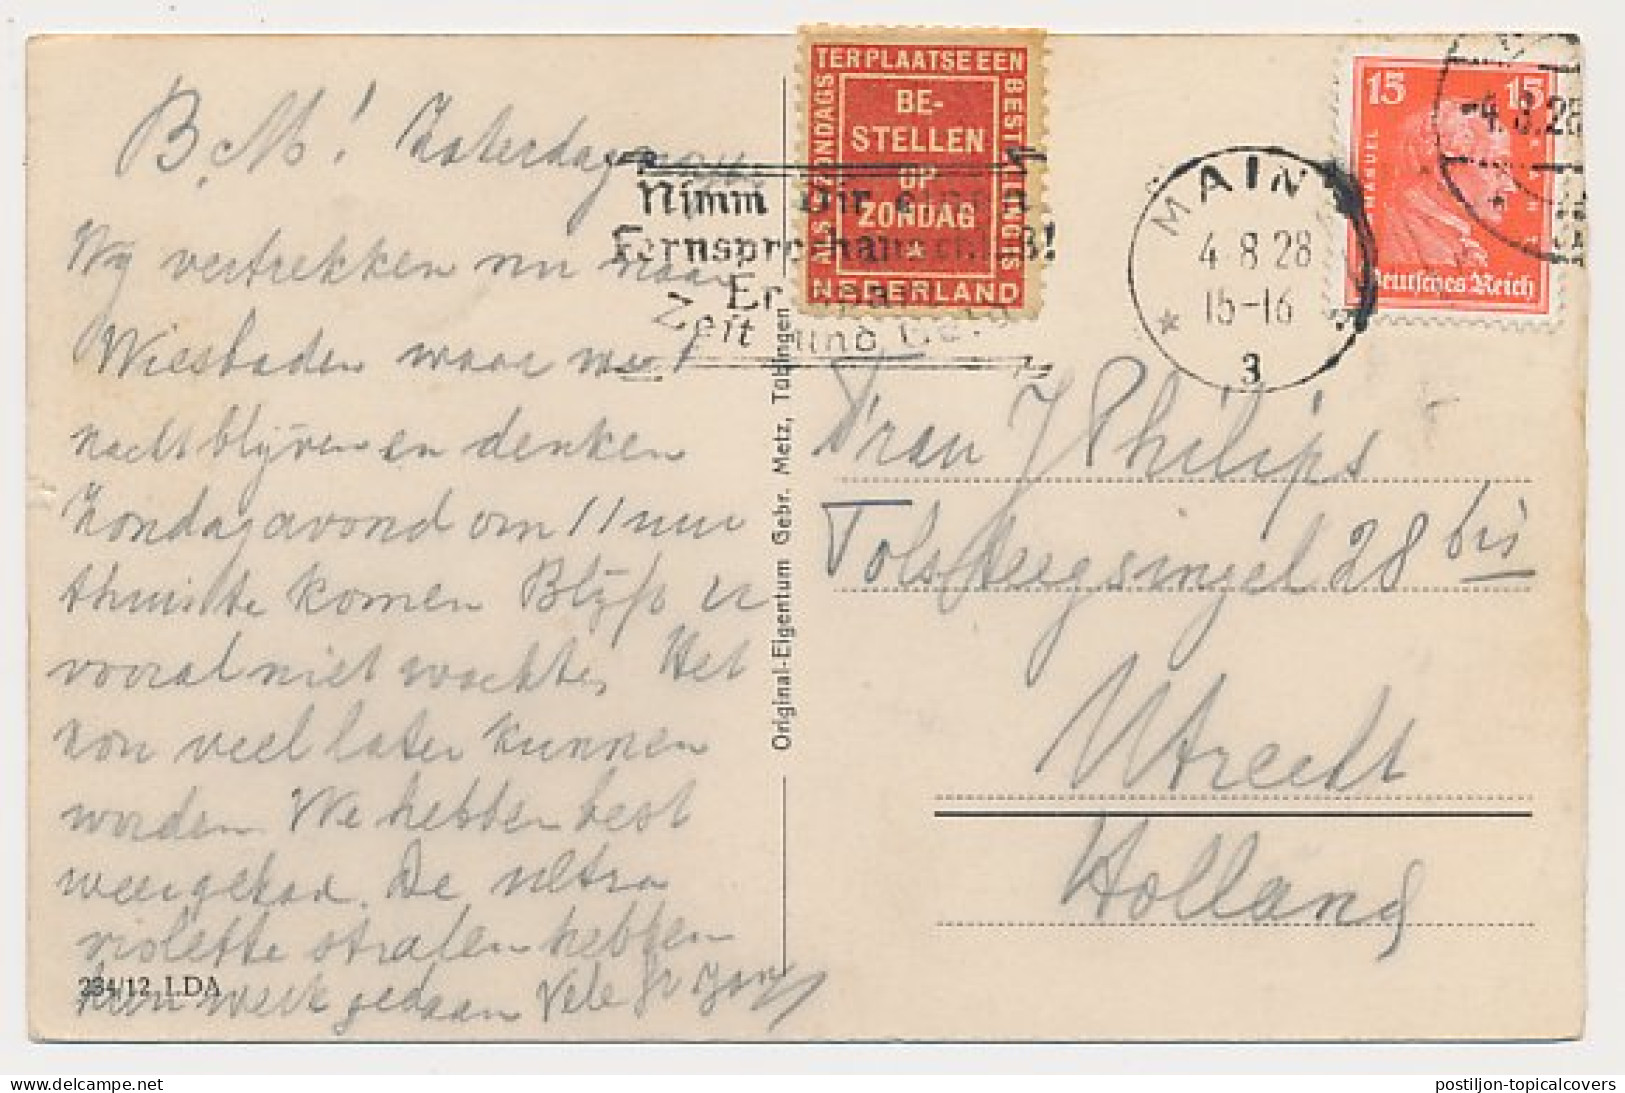 B. M! Zaterdag
Wy vertrekken nu naar
Wiesbaden waar we
nacht blijven en denken
Zondagavond om 11 uur
thuis te komen Blijf u
vooral niet wachten Het
kon veel later kunnen
worden We hebben best
weer gehad. De ultra
violette stralen hebben
hun werk gedaan Vele
234/12 LDA
Original-Eigentum Gebr. Metz, Tübingen
ALS 'ZONDAGS TER PLAATSE EEN BESTELLING IS
BE-
STELLEN
OP
ZONDAG
NEDERLAND
Nimm Dir einen
Fernsprechanschluß!
Er
Zeit und Geld
MAINZ
4 8 28
15-16
* 3
15 15
IMMANUEL
Deutsches Reich
-4.8.28
Frau J Philips
Tolsteegsingel 28 bis
Utrecht
Holland
postiljon-topicalcovers